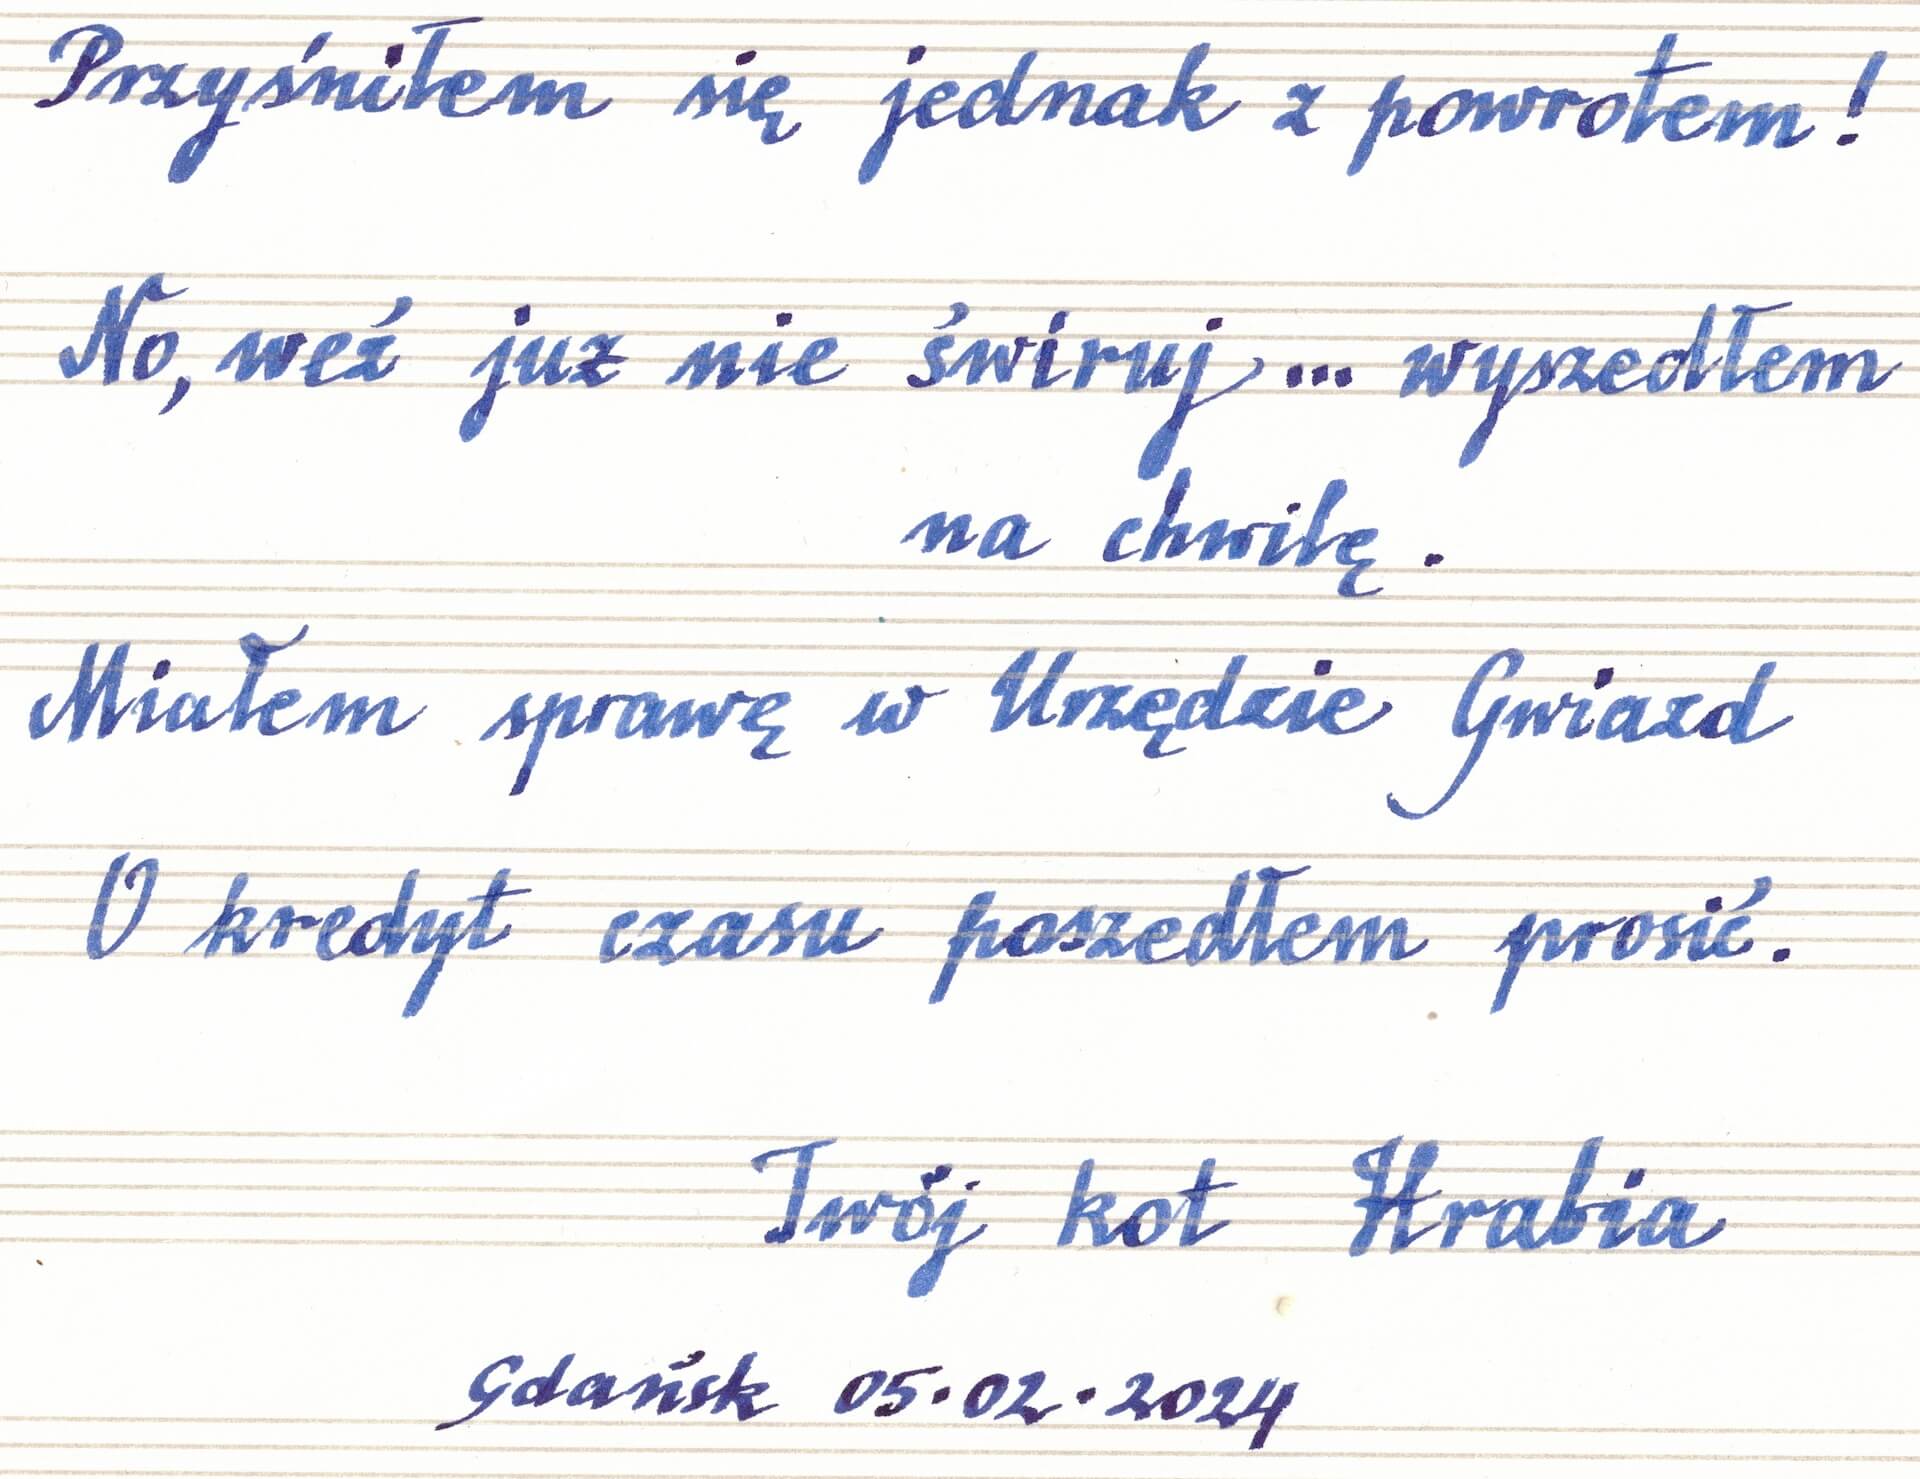 Przyśniłem się jednak z powrotem!
No, weź juz nie świruj... wyszedłem
na chwilę.
Miałem sprawę w Urzędzie Gwiazd
O kredyt czasu poszedłem prosić.
Twój kot Hrabia
Gdańsk 05.02.2024